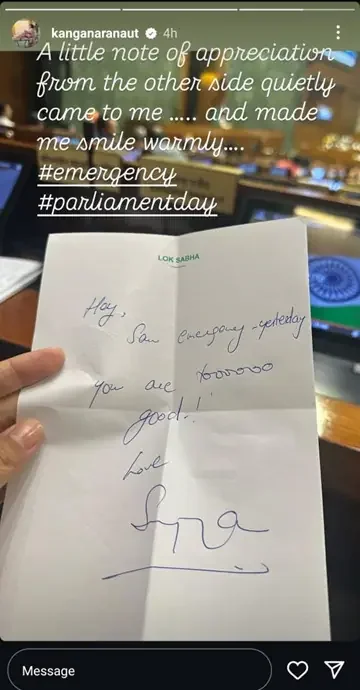 kanganaranaut 4h
A little note of appreciation
from the other side quietly
came to me ..... and made
me smile warmly....
#emergency
#parliamentday
LOK SABHA
Hey,
Saw emergency yesterday
You are toooooo
good.!
Love
Message